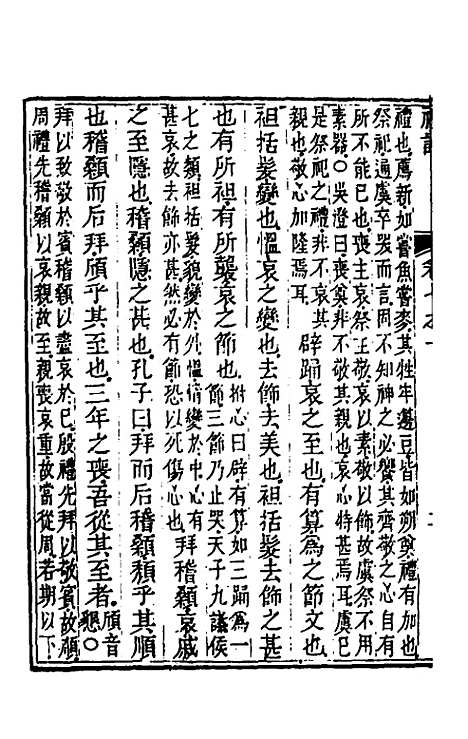 禮也薦新如嘗魚嘗麥其牲牢籩豆皆如朔奠禮有加也
祭祀通虞卒哭而言固不知神之必饗其齊敬之心自有
所不能已也喪主哀祭主敬以素敬以飾故虞祭不用
素器○吳澄曰喪奠非不敬其親也哀心特甚焉耳虞巳
是祭祀之禮非不哀其
親也敬心加隆焉耳
辟踊哀之至也有算為之節文也
袒括髮變也慍哀之變也去飾去美也袒括髮去飾之甚
也有所袒有所襲哀之節也
拊心曰辟有算如三踊為一
節三節乃止哭天子九諸侯
七之類袒括髮貌變於外慍情變於中心有
甚哀故去飾亦甚然必有節恐以死傷心也
拜稽顙哀戚
之至隱也稽顙隱之甚也孔子曰拜而后稽顙頹乎其順
也稽顙而后拜頎乎其至也三年之喪吾從其至者
頎音
懇○
拜以致敬於賓稽顙以盡哀於巳殷禮先拜以敬賓故順
周禮先稽顙以哀親故至親喪哀重故當從周若期以下